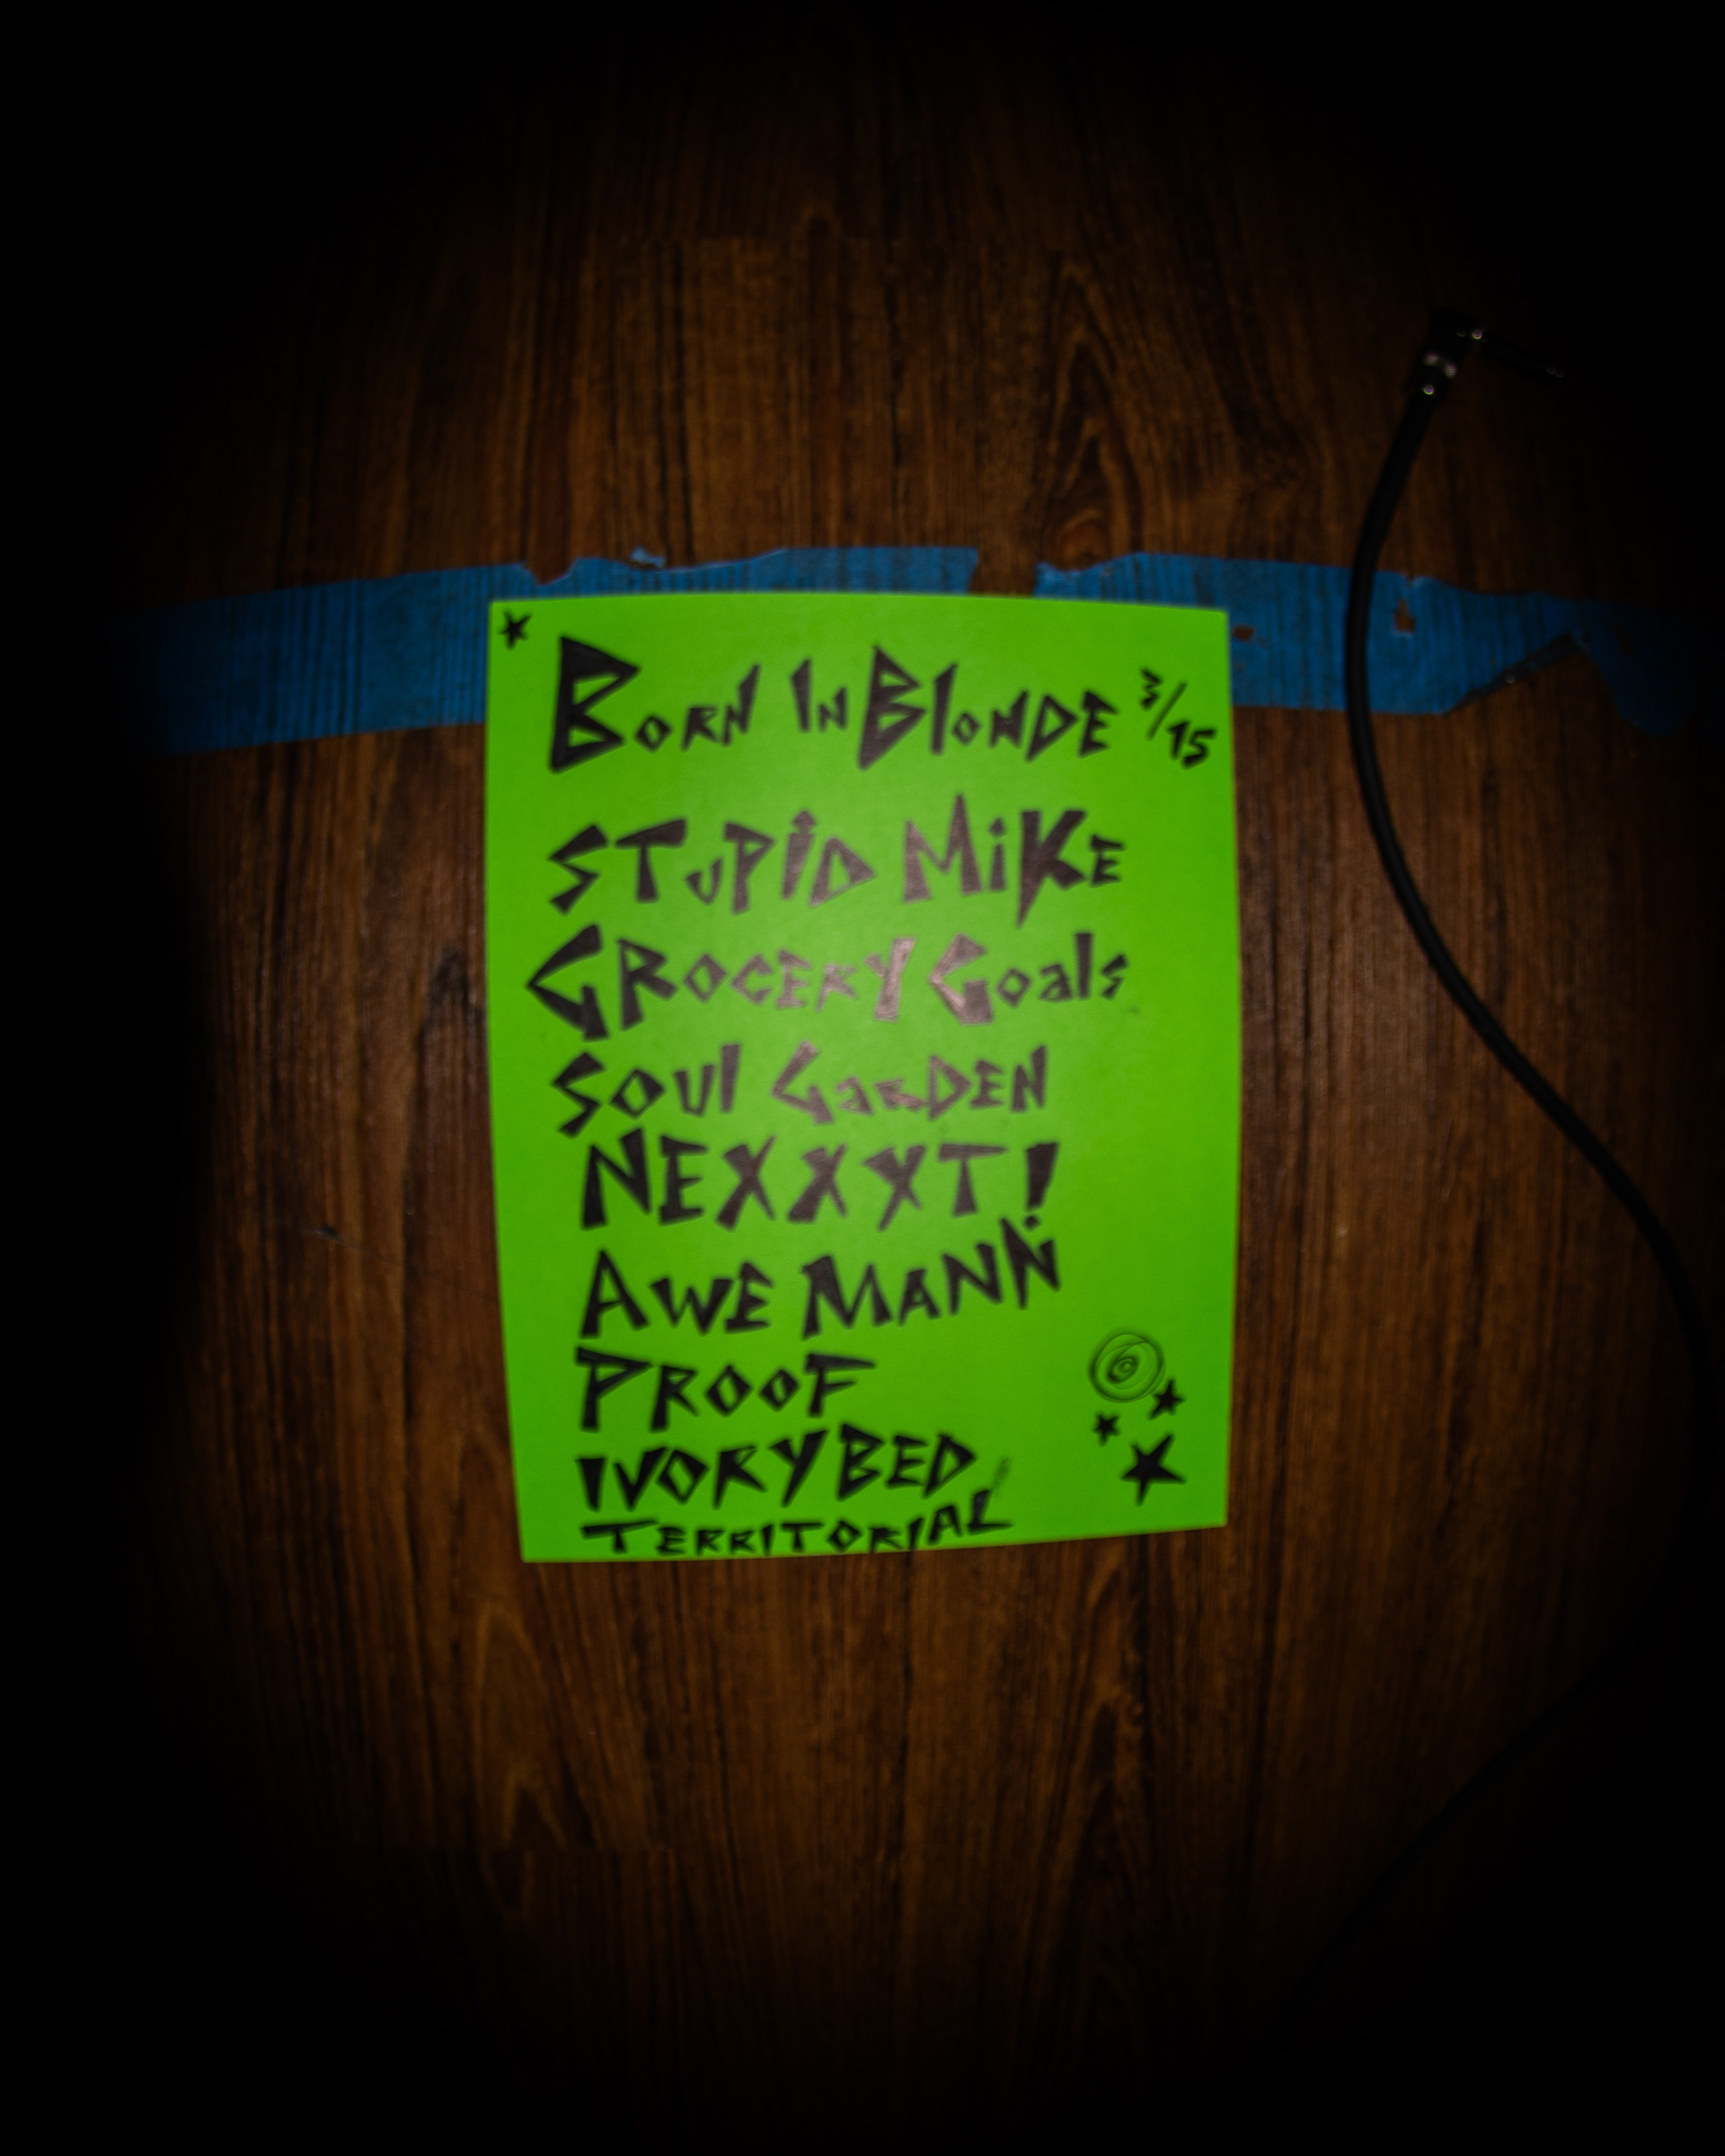 BORN IN BlONDE 3/15
STuPiD MiKE
GROCERY Goals
SOUl GaRDEN
NEXXXT!
AWE MANN
PROOF
IVORY BED
TERRITORIAL